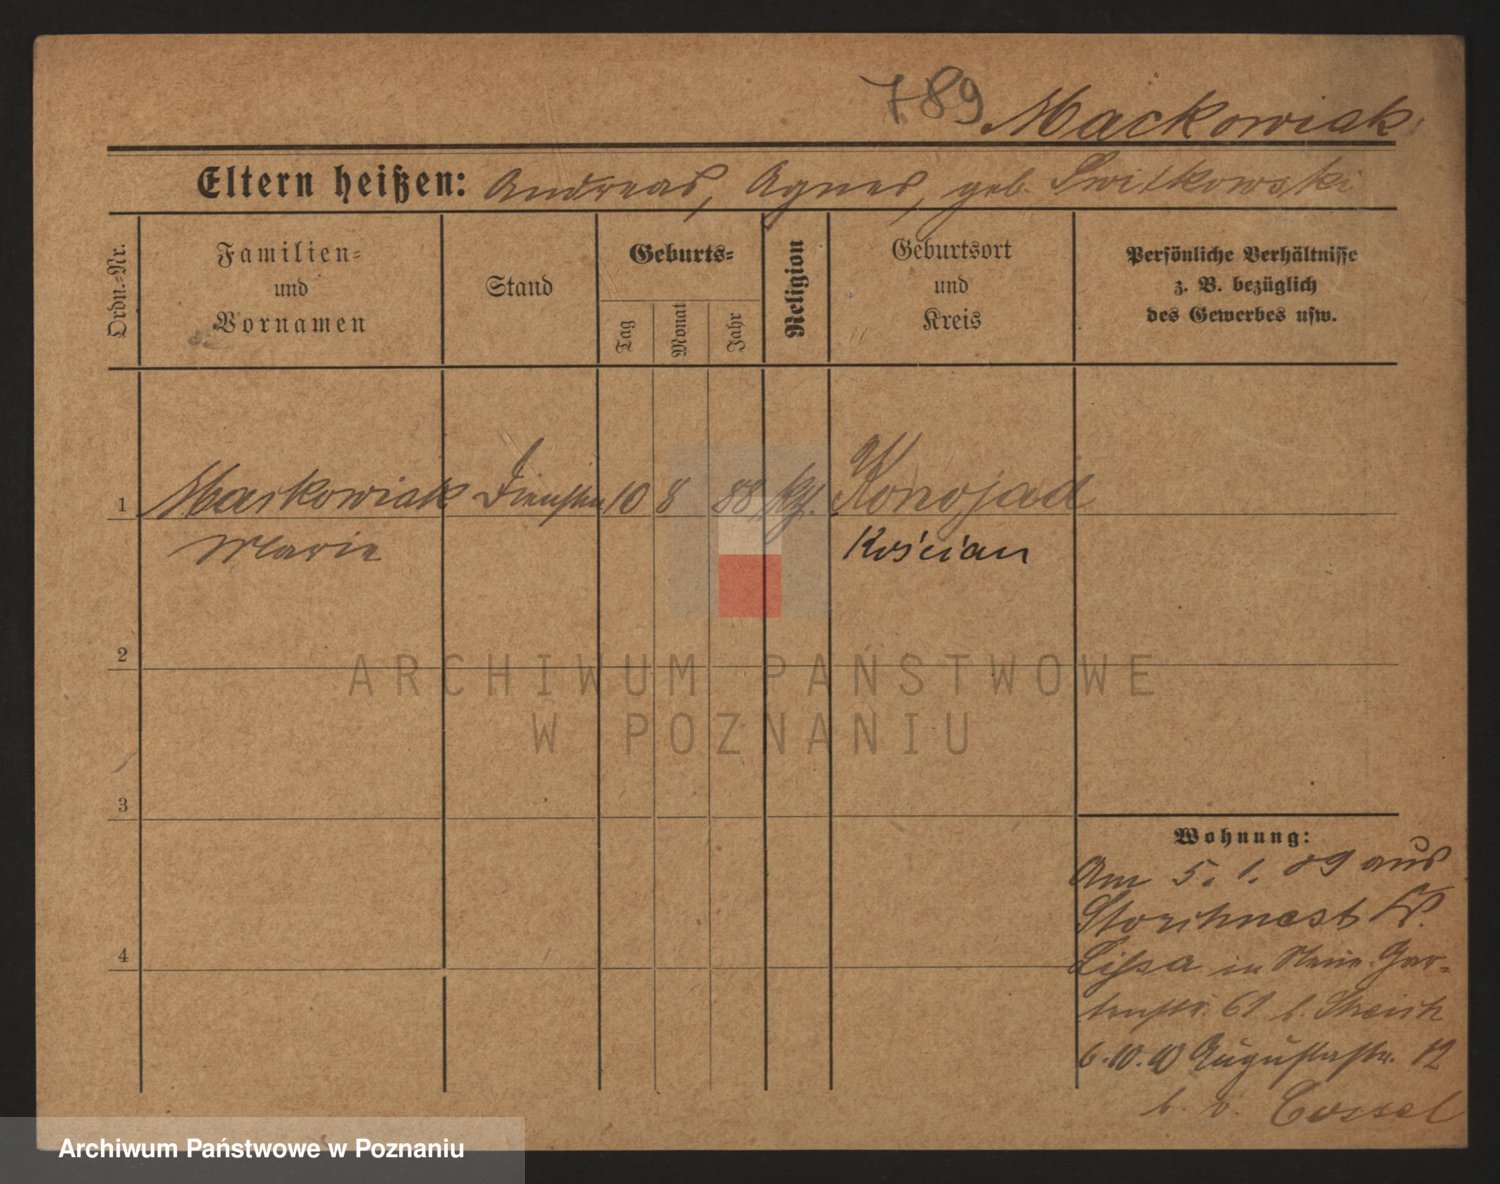 789 Mackowiak
Eltern heißen: Andreas, Agnes, geb. Switkowski
Ordn.-Nr.
Familien-
und
Vornamen
Stand
Geburts-
Tag
Monat
Jahr
Religion
Geburtsort
und
Kreis
Persönliche Verhältnisse
z. B. bezüglich
des Gewerbes usw.
1 Mackowiak Dienstm 10 8 88 kg. Konojad
Marie Kościan
2
3
4
Wohnung:
Am 5. 1. 09 aus
Storchnest Kr.
Lissa in Gar-
tenstr. 61 b. Streich
6.10.10 Augustastr. 12
b. v. Cossel
ARCHIWUM PAŃSTWOWE
W POZNANIU
Archiwum Państwowe w Poznaniu